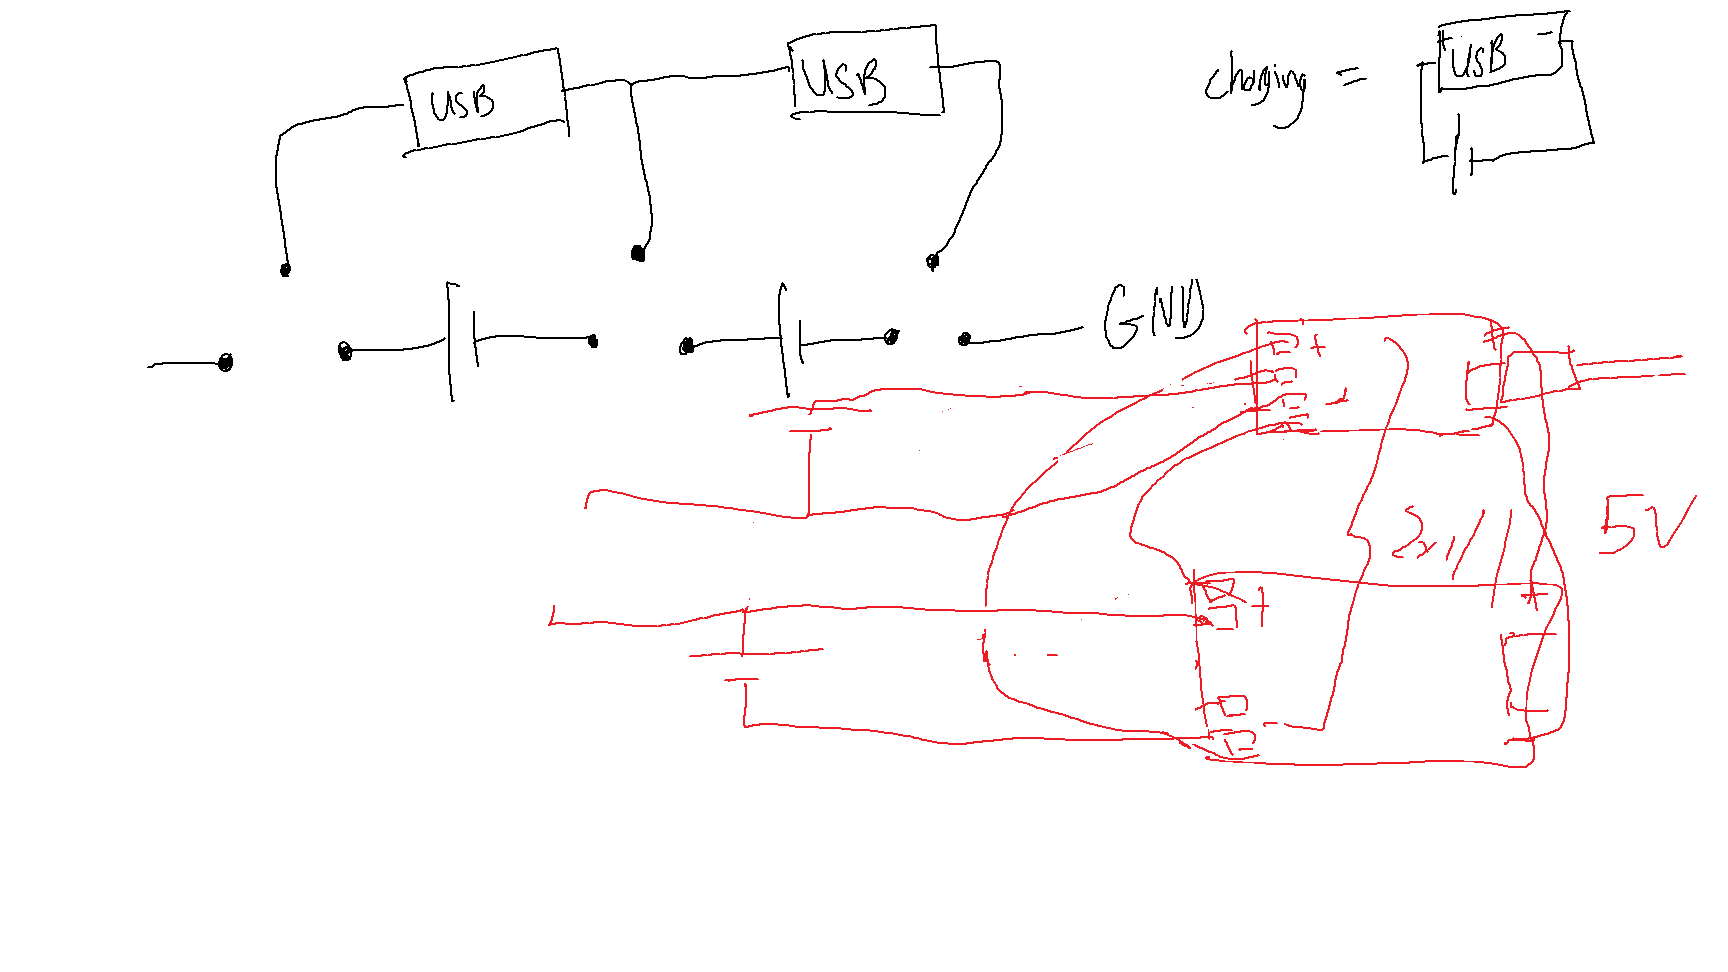 USB
USB
charging =
+ USB -
GND
+
-
+
-
+
+
-
5V